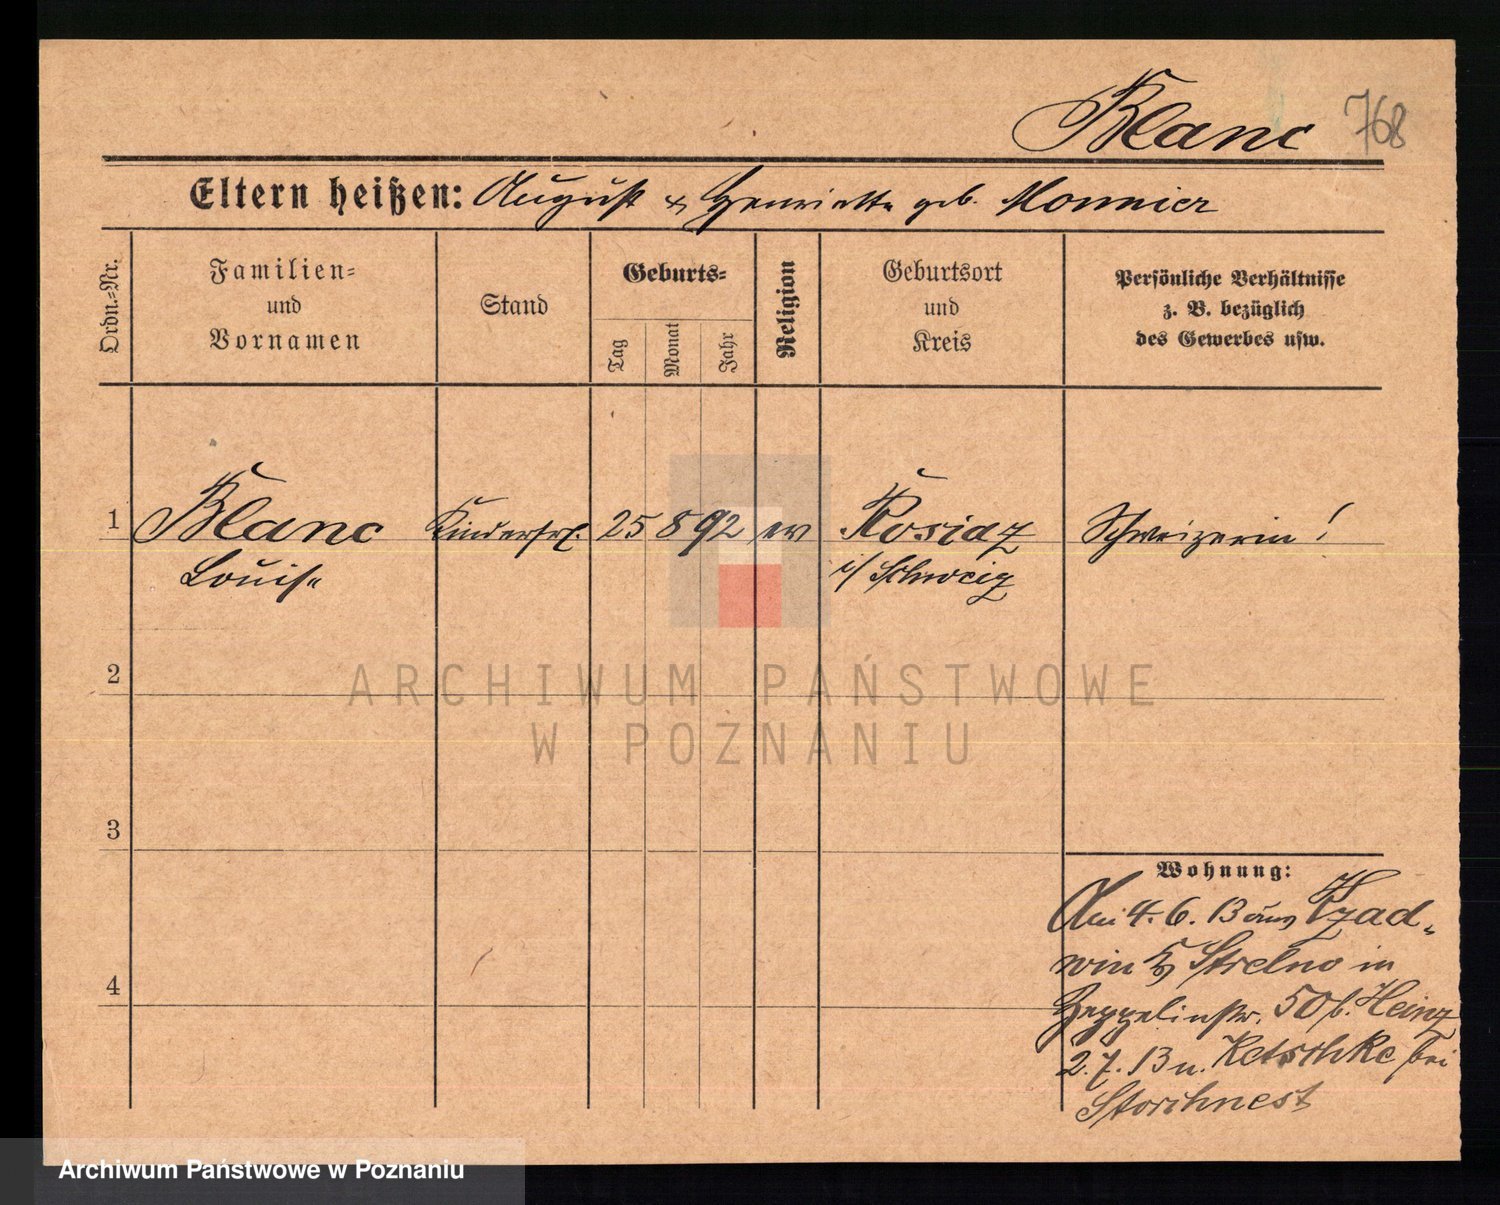 Blanc 768
Eltern heißen: August & Henriette geb. Monnier
Ordn.-Nr.
Familien-
und
Vornamen
Stand
Geburts-
Tag
Monat
Jahr
Religion
Geburtsort
und
Kreis
Persönliche Verhältnisse
z. B. bezüglich
des Gewerbes usw.
1 Blanc Kinderfrl. 25 8 92 ev Rosiaz Schweizerin!
Louise i/ Schweiz
2
ARCHIWUM PAŃSTWOWE
W POZNANIU
3
Wohnung:
Am 4. 6. 13 aus Rzad-
win Strelno in
4
Zeppelinstr. 50 b. Heinz
2. 7. 13 n. Retschke bei
Storchnest
Archiwum Państwowe w Poznaniu